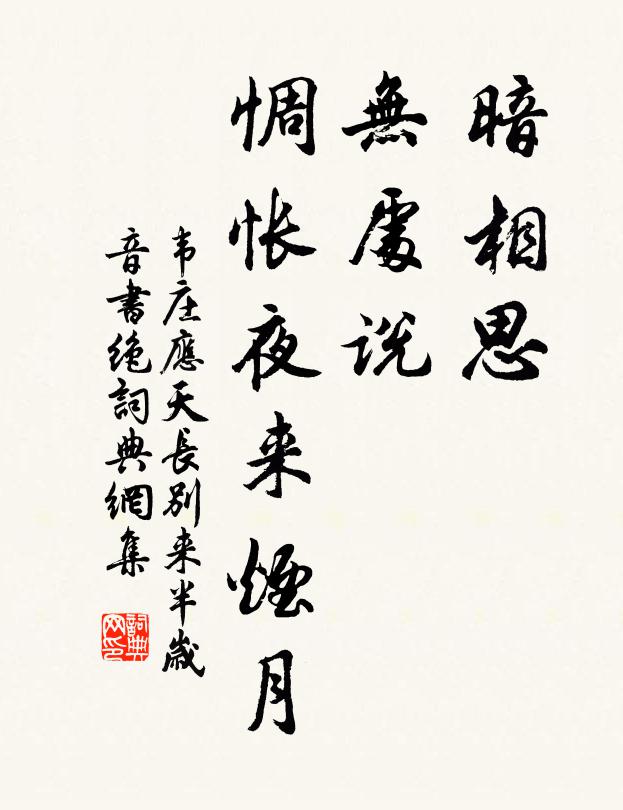 暗相思
無處説
惆悵夜来煙月
韦庄應天長别来半歲
音書絶詞典網集
詞典
网印